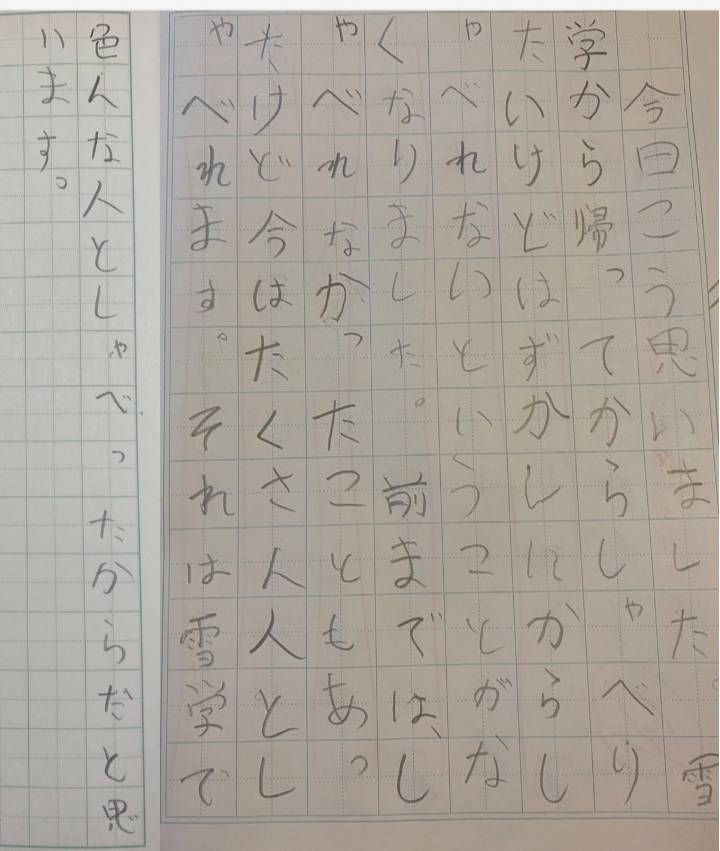 今日こう思いました。雪
学から帰ってからしゃべり
たいけどはずかしにからし
ゃべれないということがな
くなりました。前までは、し
ゃべれなかったこともあっ
たけど今はたくさん人とし
ゃべれます。それは雪学で
色んな人としゃべったからだと思
います。